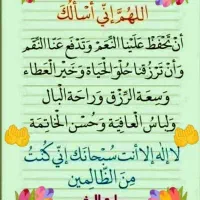 اللهُمَّ إِنِّي أَسْأَلُكَ
أَنْ تَحْفَظَ عَلَيْنَا النِّعَمْ وَتَدْفَعَ عَنَّا النِّقَمْ
وَأَنْ تَرْزُقَنَا حُلْوَ الْحَيَاةِ وَخَيْرَ الْعَطَاءِ
وَسِعَةَ الرِّزْقِ وَرَاحَةَ الْبَالِ
وَلِبَاسَ الْعَافِيَةِ وَحُسْنَ الْخَاتِمَةِ
لَا إِلَهَ إِلَّا أَنْتَ سُبْحَانَكَ إِنِّي كُنْتُ
مِنَ الظَّالِمِينَ